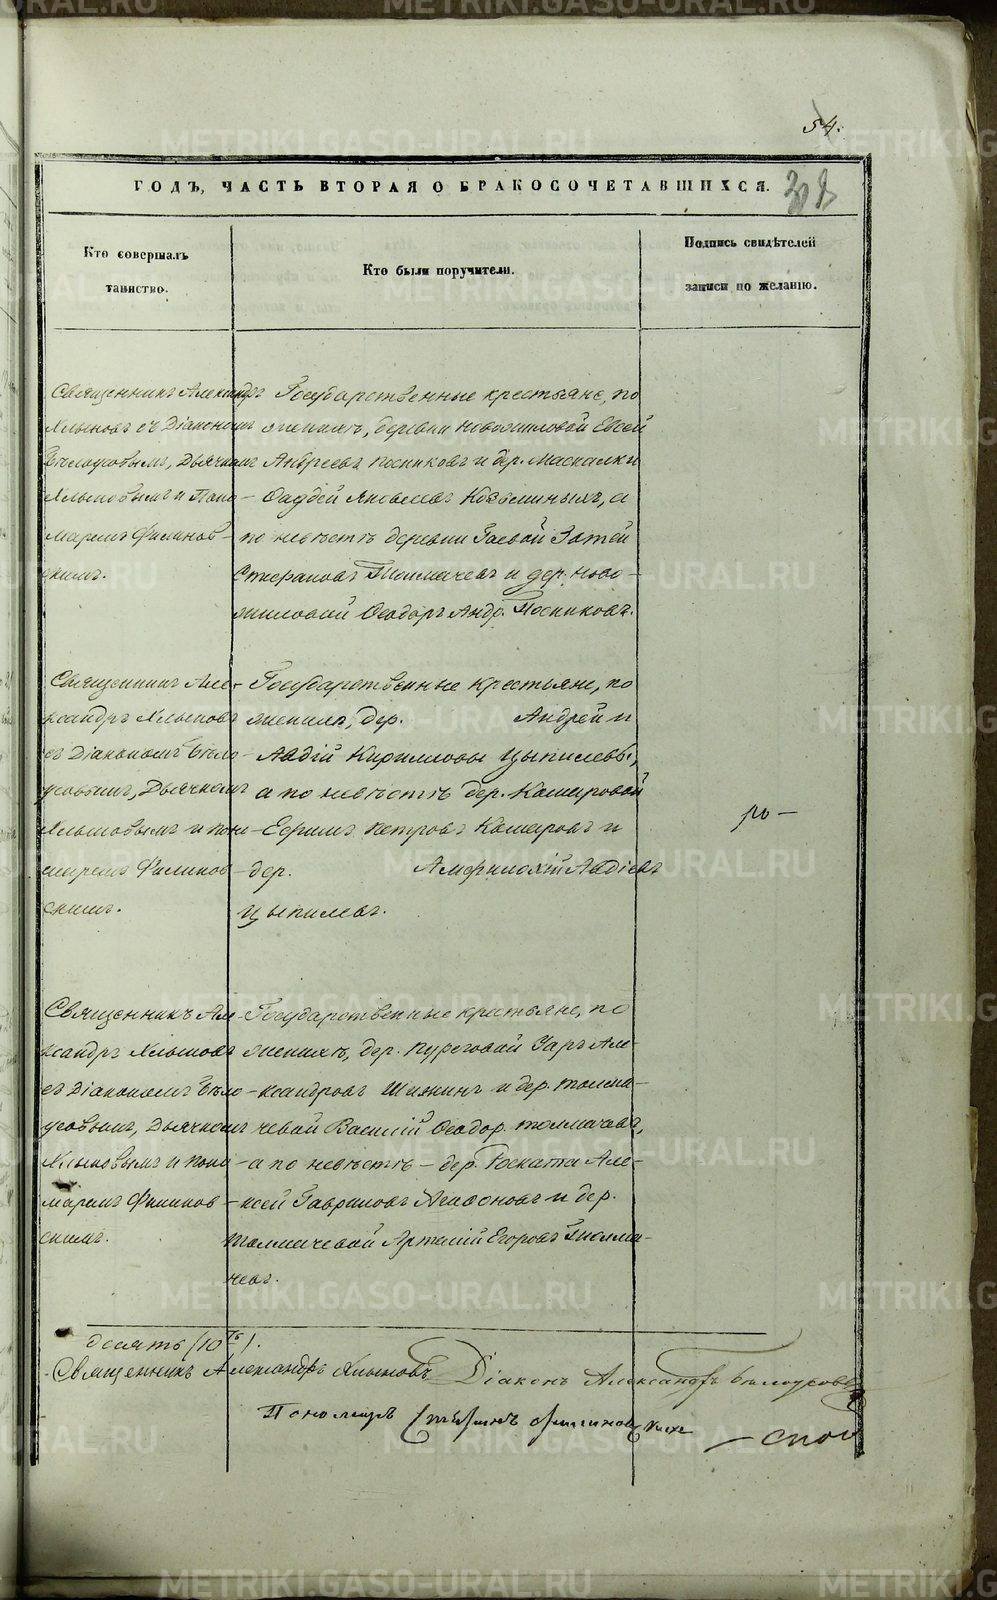 54.
ГОДЪ, ЧАСТЬ ВТОРАЯ О БРАКОСОЧЕТАВШИХСЯ.
Кто совершалъ
таинство.
Кто были поручители.
Подпись свидѣтелей
записи по желанію.
Священникъ Александръ
Хлыновъ съ Діакономъ
Бѣлоусовымъ, Дьячкомъ
Хлыновымъ и Поно-
маремъ Филинов-
скимъ.
Государственные крестьяне, по
женихѣ, деревни Новожиловой Евсей
Андреевъ Посниковъ и дер. Маскалки
Фаддей Яковлевъ Козьминыхъ, а
по невѣстѣ деревни Гаевой
Стефановъ Толмачевъ и дер. Ново-
жиловой Ѳеодоръ Андр. Посниковъ.
Священникъ Але-
ксандръ Хлыновъ
съ Діакономъ Бѣло-
усовымъ, Дьячкомъ
Хлыновымъ и Поно-
маремъ Филинов-
скимъ.
Государственные крестьяне, по
женихѣ, дер. Андрей и
Авдій Кирилловы Цыпилевы,
а по невѣстѣ дер. Комаровой
Ефимъ Петровъ Комаровъ и
дер. Амфилохій Авдіевъ
Цыпилевъ.
ро-
Священникъ Але-
ксандръ Хлыновъ
съ Діакономъ Бѣло-
усовымъ, Дьячкомъ
Хлыновымъ и Поно-
маремъ Филинов-
скимъ.
Государственные крестьяне, по
женихѣ, дер. Але-
ксандровъ Шижинъ и дер. Толма-
чевой Василій Ѳеодор. Толмачевъ,
а по невѣстѣ - дер. Роската Але-
ксей Гавриловъ и дер.
Толмачевой Артемій Егоровъ Толма-
чевъ.
десять (10ть).
Священникъ Александръ Хлыновъ Діаконъ Александръ Бѣлоусовъ
Пономарь Стефанъ Филиновскихъ
- спой
METRIKI.GASO-URAL.RU